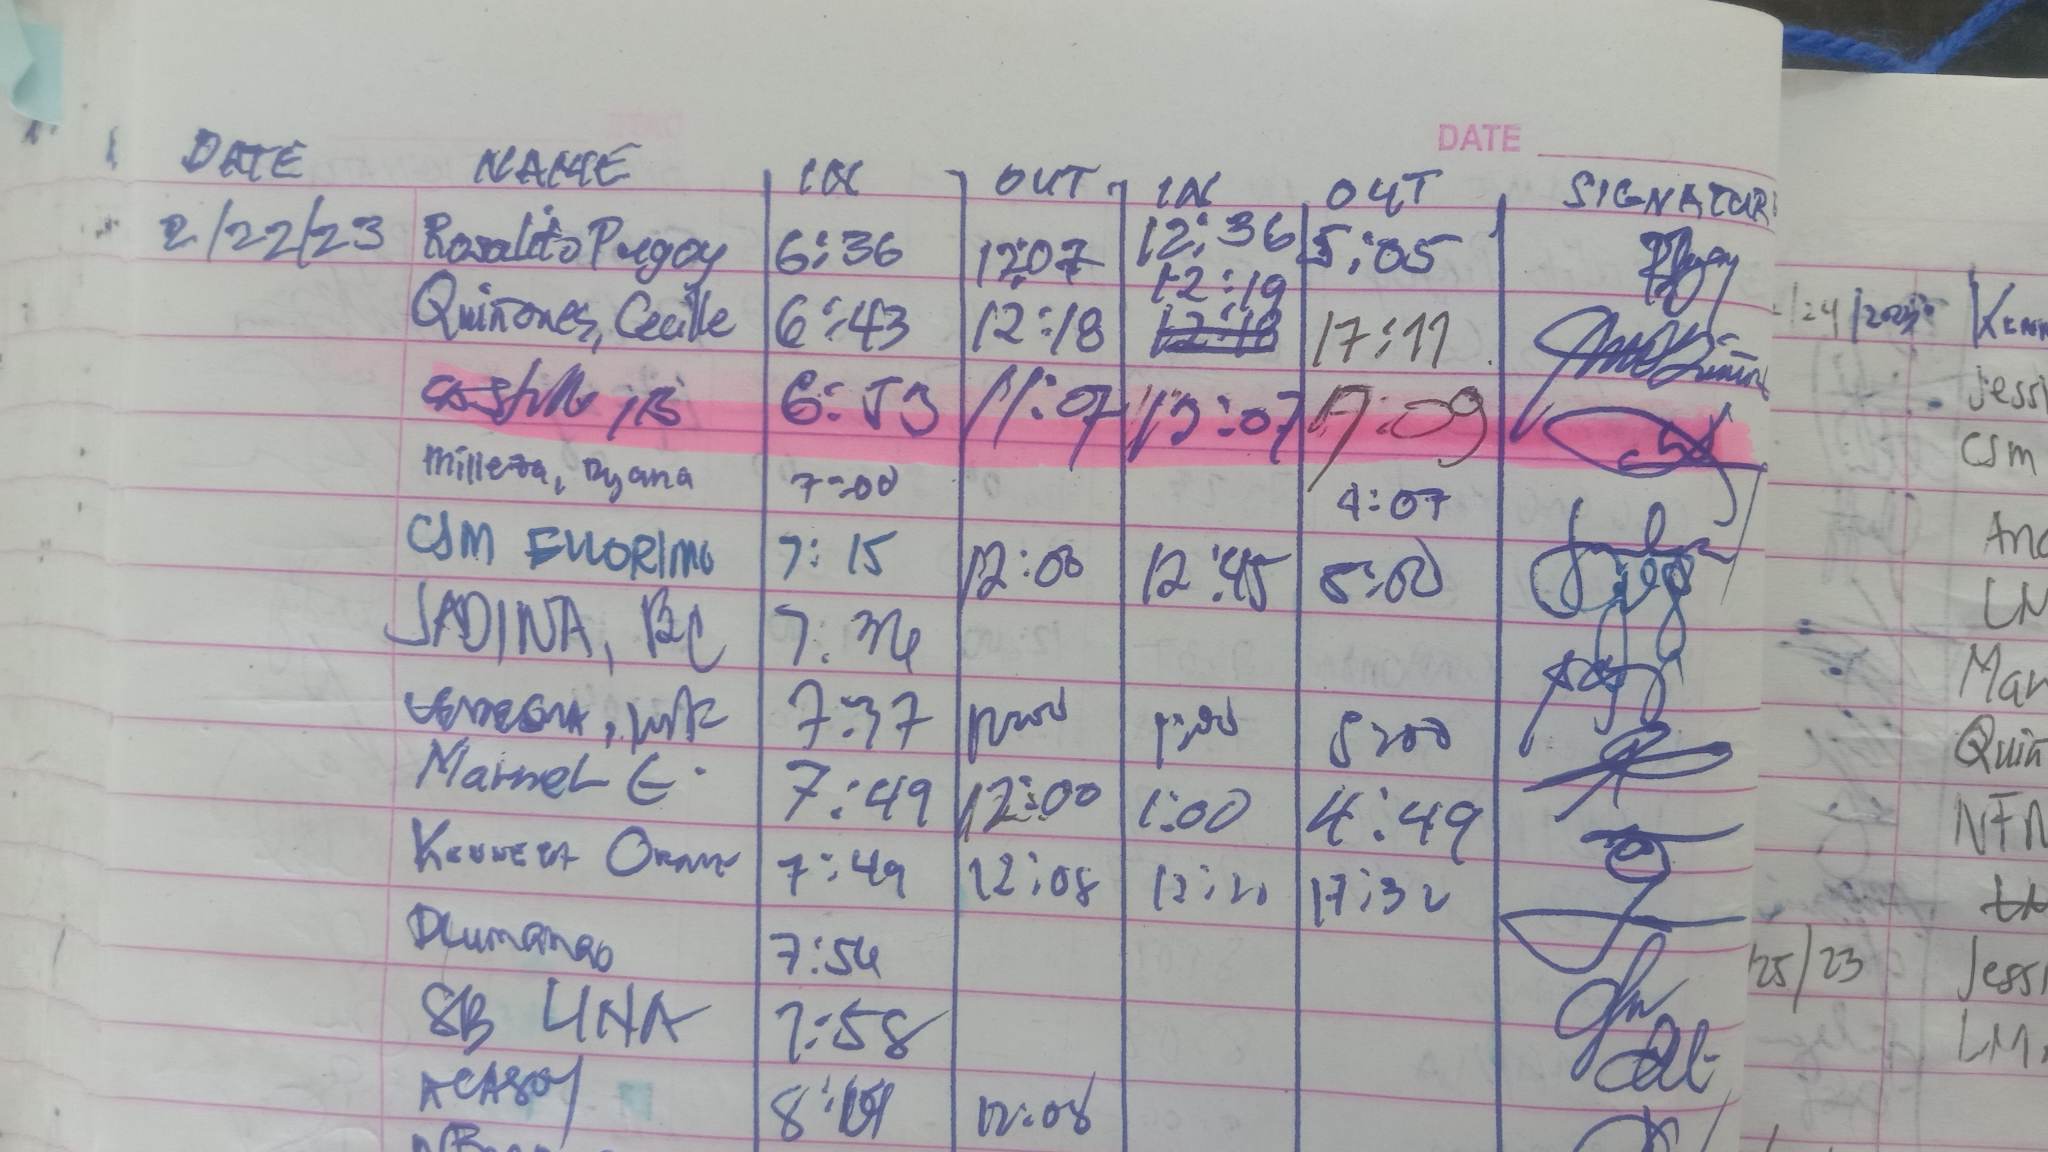 DATE
DATE NAME IN OUT IN OUT SIGNATUR
2/22/23 Rosalito Pugoy 6:36 12:07 12:36 5:05
12:19
Quiñones, Cecille 6:43 12:18 12:18 17:11
6:53 11:07 13:07 17:09
Milleza, Dyana 7:00 4:07
CSM ELLORIMO 7:15 12:00 12:45 5:00
JADINA, BC 7:36
7:37 12:00 1:00 5:00
Marnel E. 7:49 12:00 1:00 4:49
Kenneth 7:49 12:08 12:20 17:32
Dlumanao 7:54
SB LINA 7:58
ACASOY 12:08
/24/2023
Jessi
CSM
Ana
LM
Mar
Quiñ
NFN
25/23 Jessi
LM.